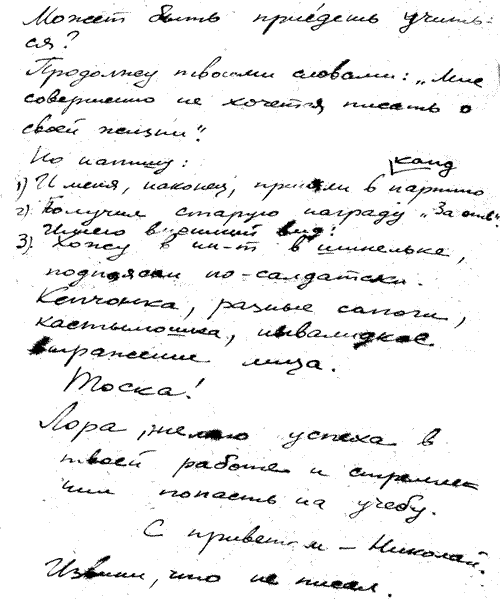 Может быть приедешь учить-
ся?
Продолжу твоими словами: „Мне
совершенно не хочется писать о
своей жизни".
Но напишу:
канд
1) И меня, наконец, приняли в партию
2) Получил старую награду „За
Имею внешний вид:
3) Хожу в ин-т в шинельке,
подпоясан по-солдатски.
Кепчонка, разные сапоги,
инвалидкое
выражение лица.
Тоска!
Лора, желаю успеха в
твоей работе и стремле
нии попасть на учебу.
С приветом – Николай.
Извини, что не писал.